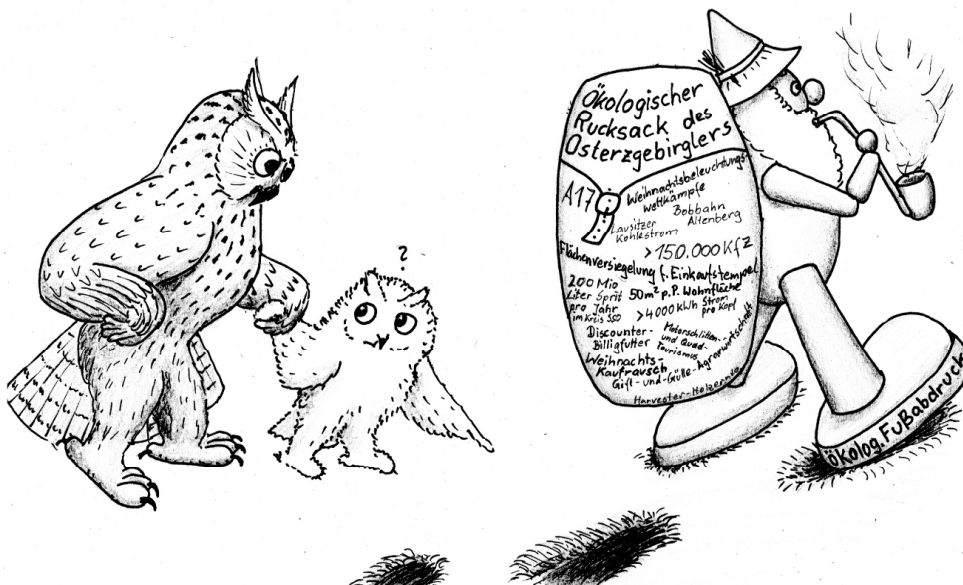 ?
Ökologischer
Rucksack des
Osterzgebirglers
A17
Weihnachtsbeleuchtungs-
wettkämpfe
Bobbahn
Altenberg
Lausitzer
Kohlestrom
>150.000 Kfz
Flächenversiegelung f. Einkaufstempel
200 Mio
Liter Sprit
pro Jahr
im Kreis SSO
50m² p.P. Wohnfläche
>4000 kWh Strom
pro Kopf
Discounter-
Billigfutter
Motorschlitten-
und Quad-
Tourismus
Weihnachts-
Kaufrausch
Gift-und-Gülle-Agrarwirtschaft
Harvester-Holzernte
ökolog. Fußabdruck